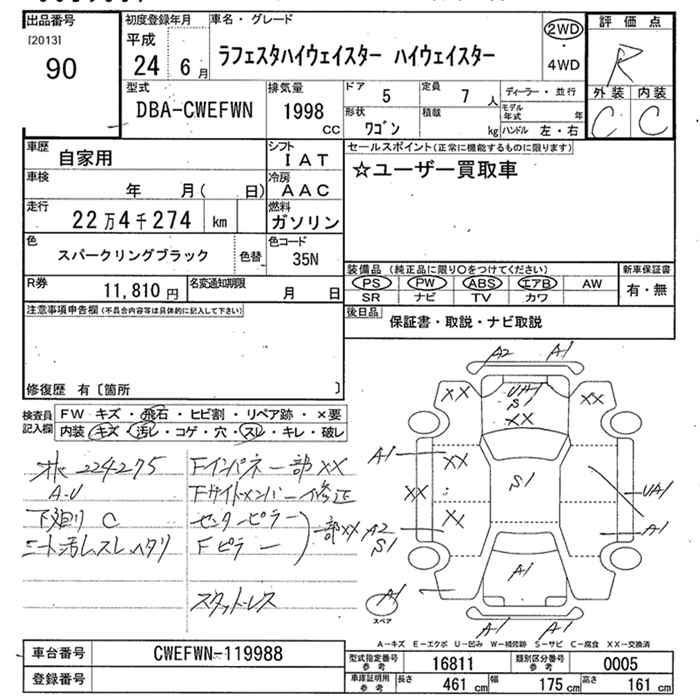 出品番号 初度登録年月 車名・グレード 評価点
[2013] 平成
90 24年 6月 ラフェスタハイウェイスター ハイウェイスター 2WD・4WD R
外装 内装
C C
型式 排気量 ドア 5 定員 7人 ディーラー・並行
DBA-CWEFWN 1998 CC 形状 ワゴン 積載 kg モデル年式 年
ハンドル 左・右
車歴 自家用 シフト IAT セールスポイント(正常に機能するものに限ります)
車検 年 月( 日) 冷房 AAC ☆ユーザー買取車
走行 22万4千274 km 燃料 ガソリン
色 スパークリングブラック 色替 色コード 35N
装備品(純正品に限り○をつけてください) 新車保証書
PS PW ABS エアB AW 有・無
SR ナビ TV カワ
R券 11,810円 名変通知期限 月 日
後日品 保証書・取説・ナビ取説
注意事項申告欄(不具合内容等は具体的に記入して下さい)
修復歴 有〔箇所 〕
検査員記入欄 FW キズ・飛石・ヒビ割・リペア跡・×要
内装・キズ・汚レ・コゲ・穴・スレ・キレ・破レ
224275 Fインパネ一部XX
A-U Fサイドメンバー修正
下廻りC センターピラー
シート汚レ、スレ、ヘタリ Fピラー 一部XX
スタットレス
A2 A1
XX UA1 XX
S1
XX
A1 XX
S1
XX UA1
XX
A2 A1
S1
A1
A1
スペア
A1 A1
A-キズ E-エクボ U-凹み W-補修跡 S-サビ C-腐食 XX-交換済
車台番号 CWEFWN-119988
登録番号
型式指定番号 参考 16811 類別区分番号 参考 0005
車庫証明用 参考 長さ 461 cm 幅 175 cm 高さ 161 cm